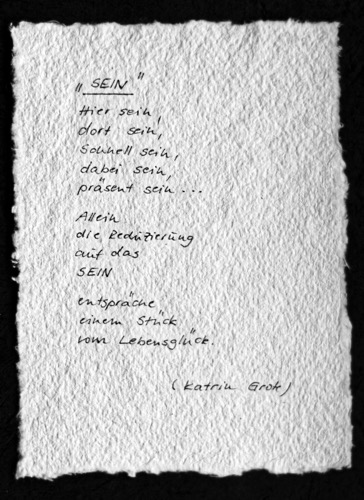 „SEIN“
Hier sein,
dort sein,
schnell sein,
dabei sein,
präsent sein...
Allein
die Reduzierung
auf das
SEIN
entspräche
einem Stück
vom Lebensglück.
(Katrin Grote)